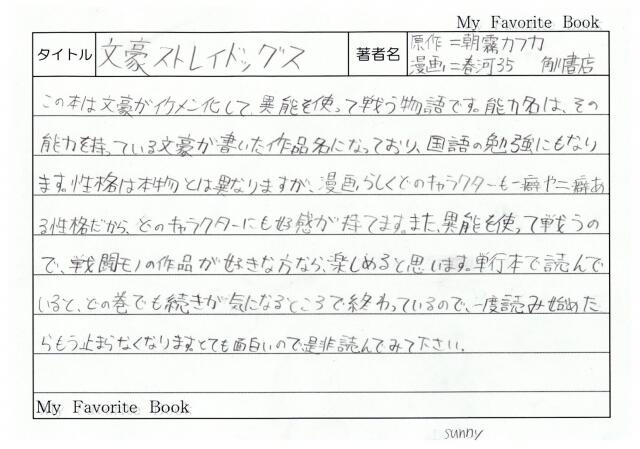 My Favorite Book
タイトル 文豪ストレイドッグス 著者名 原作=朝霧カフカ
漫画=春河35 角川書店
この本は文豪がイケメン化して、異能を使って戦う物語です。能力名は、その
能力を持っている文豪が書いた作品名になっており、国語の勉強にもなり
ます。性格は本物とは異なりますが、漫画らしくどのキャラクターも一癖や二癖あ
る性格だから、どのキャラクターにも好感が持てます。また、異能を使って戦うの
で、戦闘モノの作品が好きな方なら、楽しめると思います。単行本で読んで
いると、どの巻でも続きが気になるところで終わっているので、一度読み始めた
らもう止まらなくなります。とても面白いので是非読んでみて下さい。
My Favorite Book
sunny